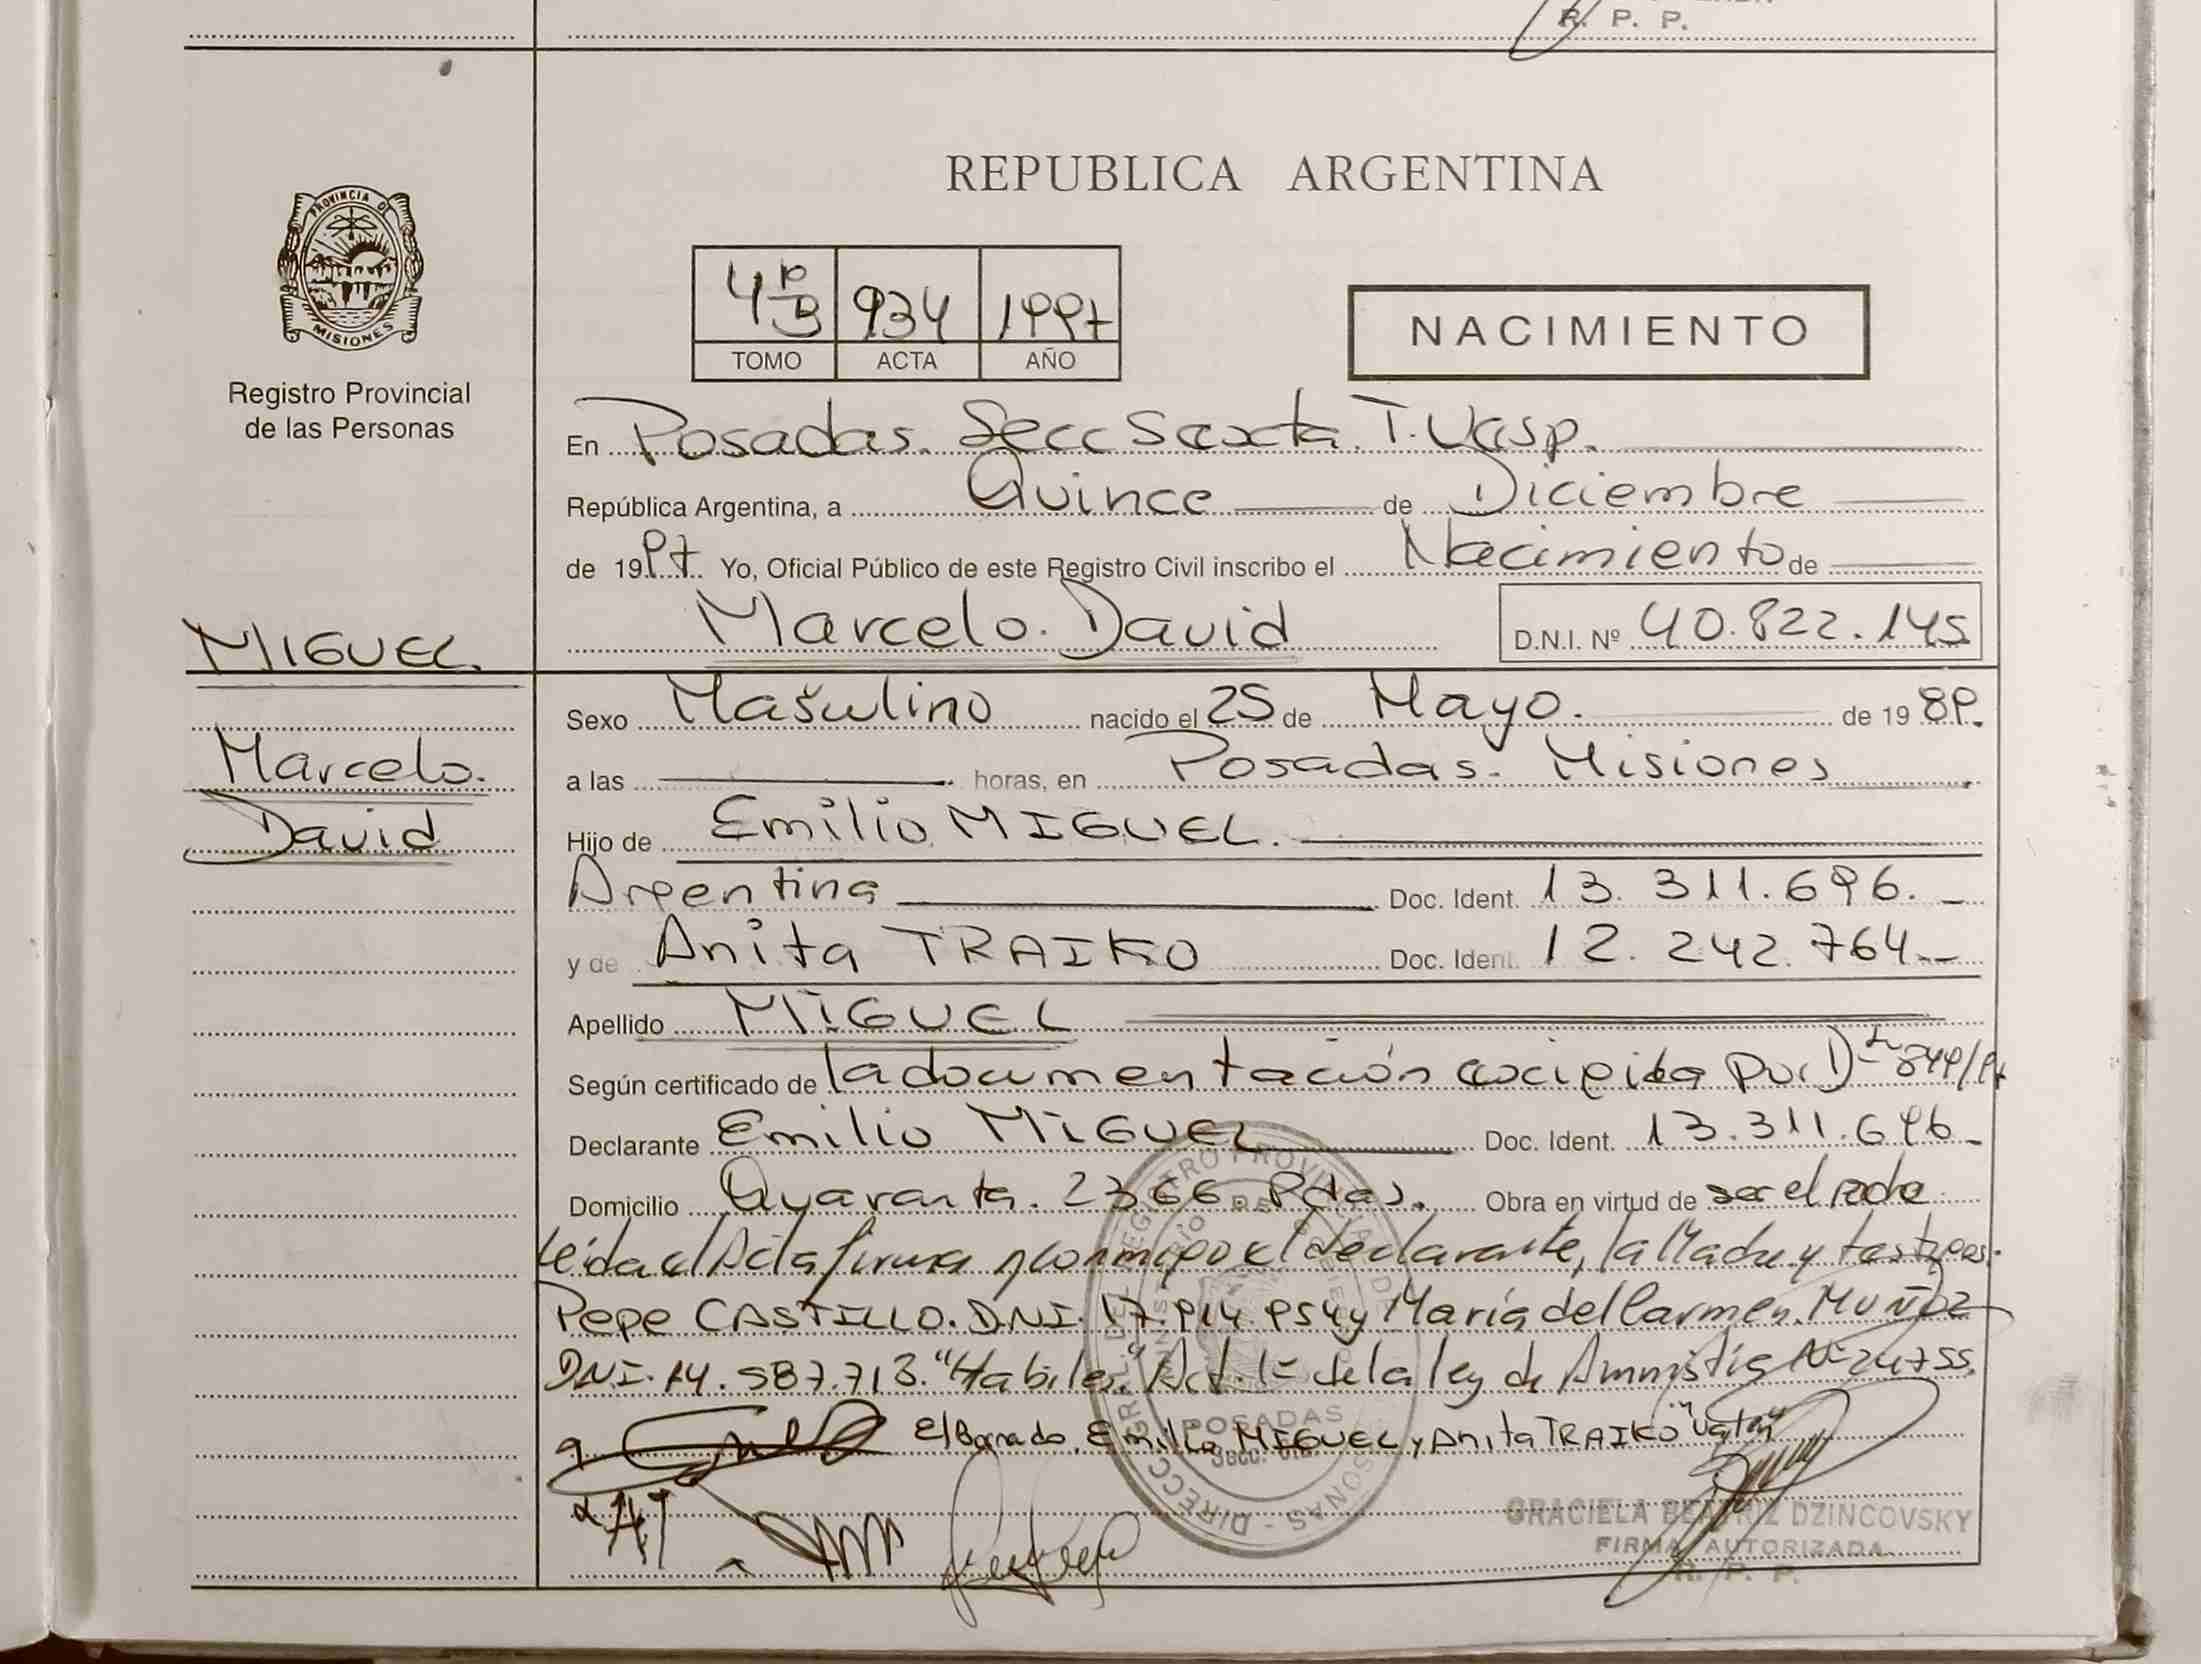 R. P. P.
REPUBLICA ARGENTINA
PROVINCIA DE
MISIONES
Registro Provincial
de las Personas
4º B 934 1997
TOMO ACTA AÑO
NACIMIENTO
En Posadas. Secc Sexta. T. Vesp.
República Argentina, a Quince de Diciembre
de 1997. Yo, Oficial Público de este Registro Civil inscribo el Nacimiento de
Marcelo. David D.N.I. Nº 40.822.145
MIGUEL.
Marcelo.
David
Sexo Masculino nacido el 25 de Mayo. de 1989.
a las horas, en Posadas. Misiones
Hijo de Emilio MIGUEL.
Argentina Doc. Ident. 13.311.696.
y de Anita TRAIKO Doc. Ident. 12.242.764
Apellido MIGUEL
Según certificado de la documentación por 849/97
Declarante Emilio MIGUEL Doc. Ident. 13.311.696
Domicilio Quaranta. 2366 Pdas. Obra en virtud de ser el padre
Leida el Acta firma y conmigo el declarante, la Madre y testigos.
Pepe CASTILLO. DNI. 17.914.954 y María del Carmen. MUÑOZ
DNI. 14.587.713. "Habiles." Art. 1º de la ley de Amnistia Nº 24755.
El Borrado. Emilio MIGUEL y Anita TRAIKO "Valen"
POSADAS
GRACIELA BEATRIZ DZINCOVSKY
FIRMA AUTORIZADA
R. P. P.